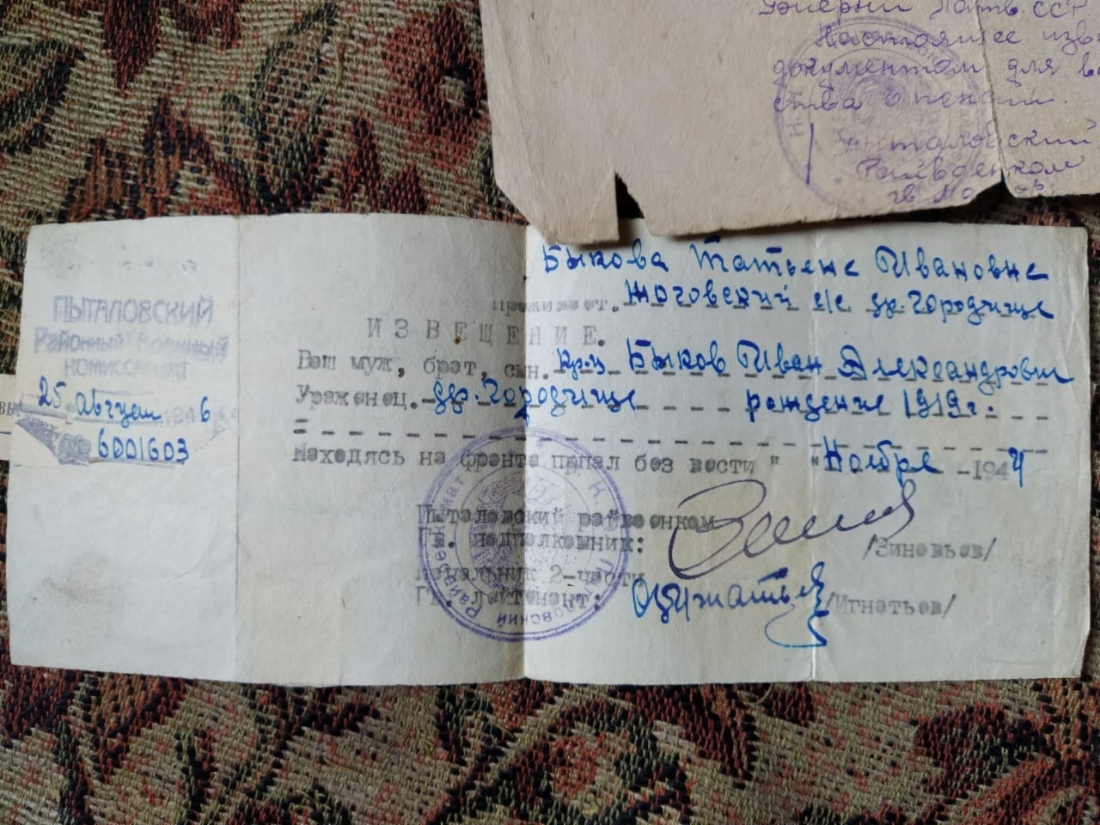 Латв. ССР
Настоящее изве
документом для
ства о пенсии.
Пыталовский
Райвоенком
гв.
ПЫТАЛОВСКИЙ
Районный Военный
КОМИССАРИАТ
25 август 1946
6001603
Быкова Татьяне Ивановне
прожив ст. Жоговский с/с др. Городище
ИЗВЕЩЕНИЕ.
Ваш муж, брат, сын. кр-ц Быков Иван Александрович
Уроженец. др. Городище рождение 1919 г.
Находясь на фронте пропал без вести " " Ноября -1944
Пыталовский райвоенком
Гв. подполковник: /Зиновьев/
Начальник 2-части
Гв. лейтенант: Игнатьев /Игнатьев/